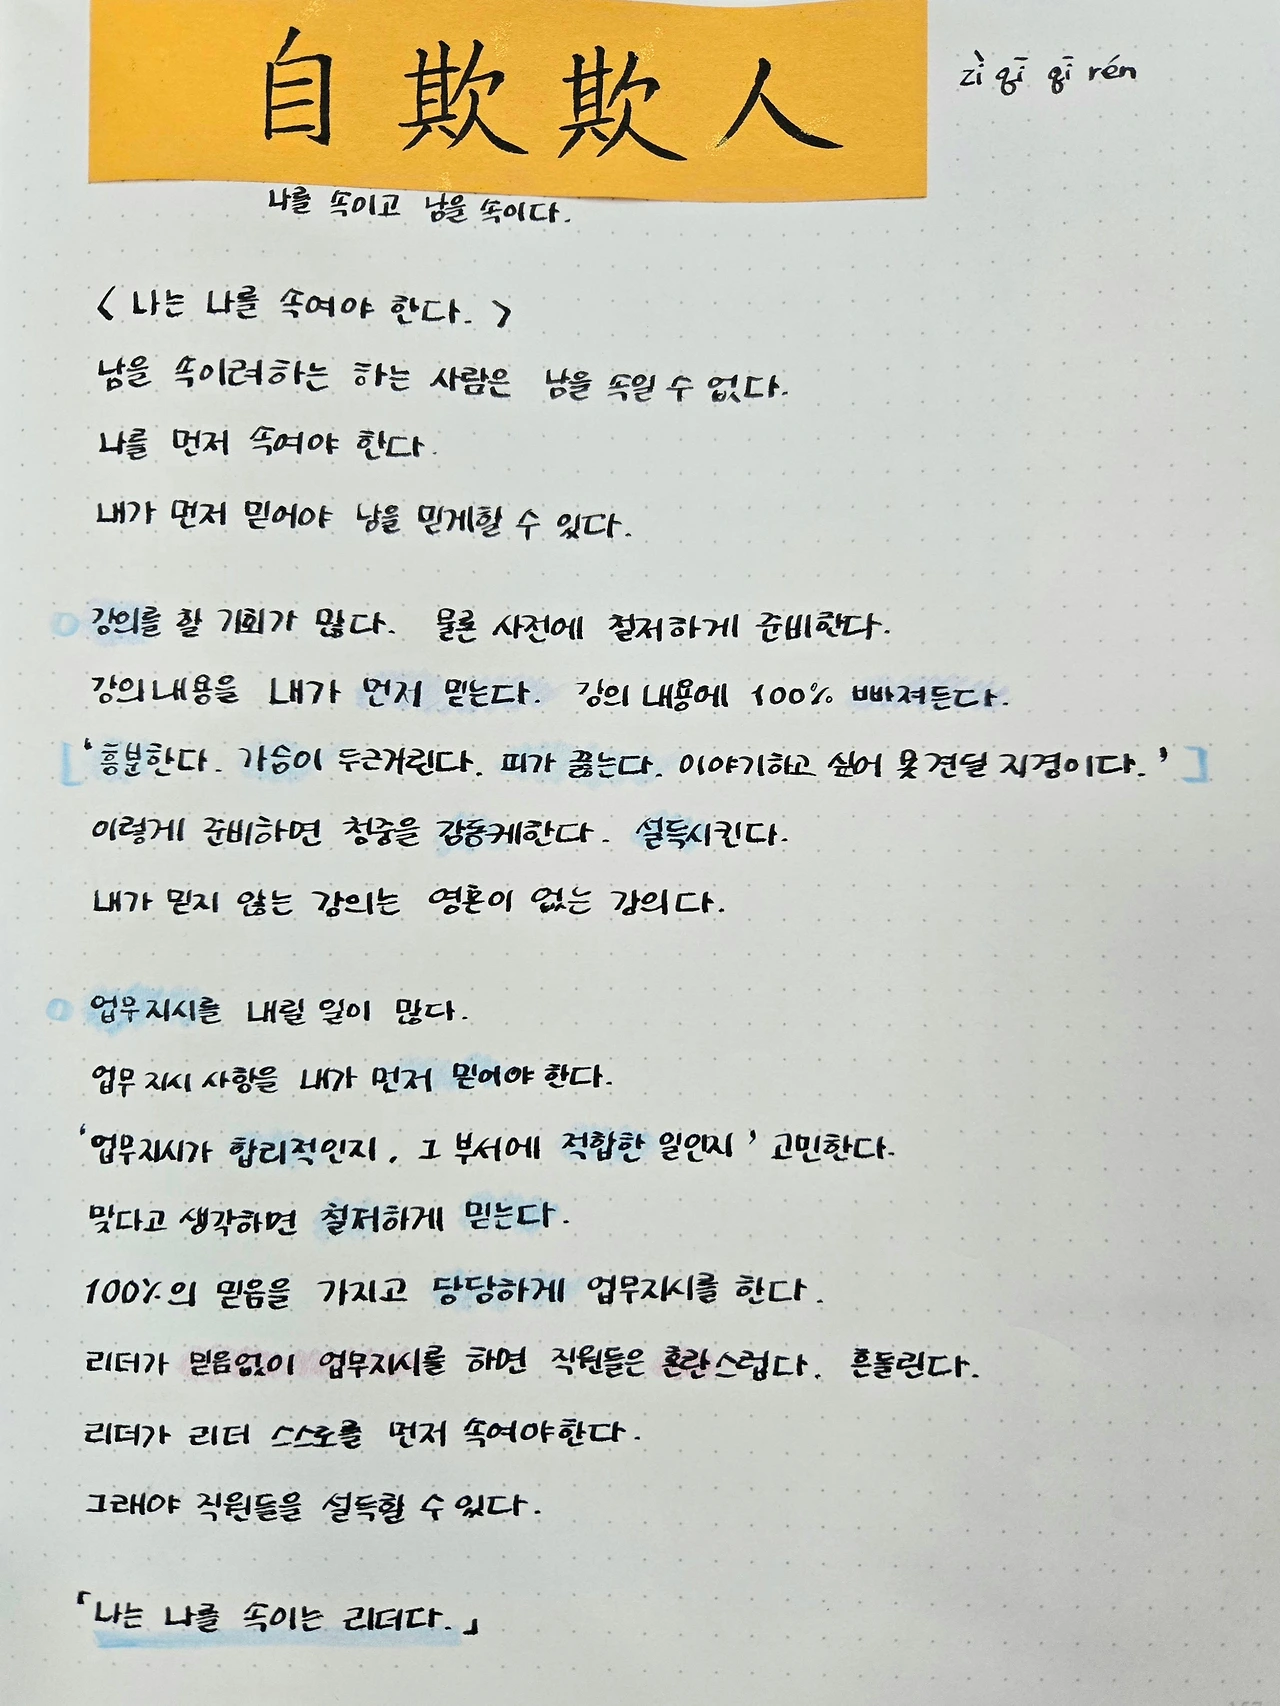 自欺欺人
zì qī qī rén
나를 속이고 남을 속이다.
< 나는 나를 속여야 한다. >
남을 속이려하는 하는 사람은 남을 속일 수 없다.
나를 먼저 속여야 한다.
내가 먼저 믿어야 남을 믿게할 수 있다.
강의를 할 기회가 많다. 물론 사전에 철저하게 준비한다.
강의내용을 내가 먼저 믿는다. 강의 내용에 100% 빠져든다.
['흥분한다. 가슴이 두근거린다. 피가 끓는다. 이야기하고 싶어 못견딜 지경이다.']
이렇게 준비하면 청중을 감동케한다. 설득시킨다.
내가 믿지 않는 강의는 영혼이 없는 강의다.
업무지시를 내릴 일이 많다.
업무지시 사항을 내가 먼저 믿어야 한다.
'업무지시가 합리적인지, 그 부서에 적합한 일인지' 고민한다.
맞다고 생각하면 철저하게 믿는다.
100%의 믿음을 가지고 당당하게 업무지시를 한다.
리더가 믿음없이 업무지시를 하면 직원들은 혼란스럽다. 흔들린다.
리더가 리더 스스로를 먼저 속여야한다.
그래야 직원들을 설득할 수 있다.
「나는 나를 속이는 리더다.」